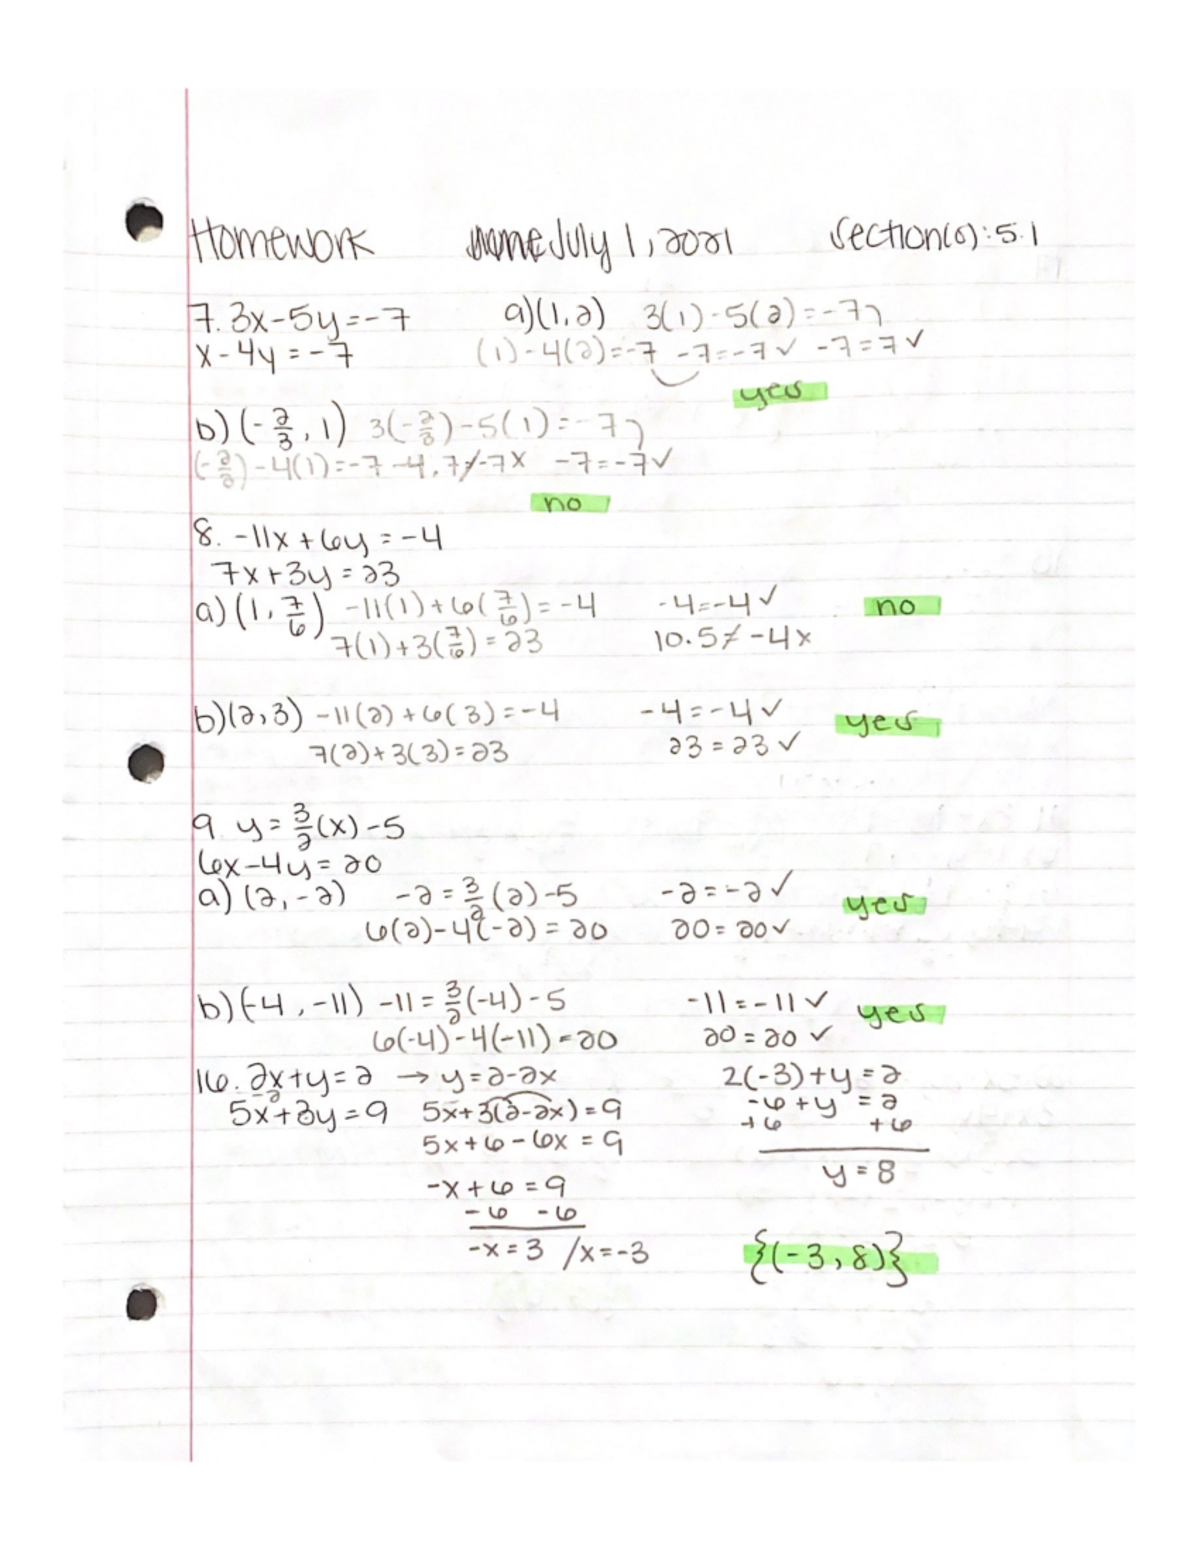 Homework July 1, 2021 Section(s): 5.1
7. 3x-5y=-7 a)(1,2) 3(1)-5(2)=-7
x-4y=-7 (1)-4(2)=-7 -7=-7✓ -7=7✓
yes
b)(-2/3, 1) 3(-2/3)-5(1)=-7
(-2/3)-4(1)=-7 -4.7≠-7x -7=-7✓
no
8. -11x+6y=-4
7x+3y=23
a)(1, 7/6) -11(1)+6(7/6)=-4 -4=-4✓ no
7(1)+3(7/6)=23 10.5≠-4x
b)(2,3) -11(2)+6(3)=-4 -4=-4✓ yes
7(2)+3(3)=23 23=23✓
9. y=3/2(x)-5
6x-4y=20
a) (2,-2) -2=3/2(2)-5 -2=-2✓ yes
6(2)-4(-2)=20 20=20✓
b)(-4,-11) -11=3/2(-4)-5 -11=-11✓ yes
6(-4)-4(-11)=20 20=20✓
16. 2x+y=2 → y=2-2x 2(-3)+y=2
5x+3y=9 5x+3(2-2x)=9 -6+y=2
5x+6-6x=9 +6 +6
-x+6=9 y=8
-6 -6
-x=3 /x=-3 {(-3,8)}